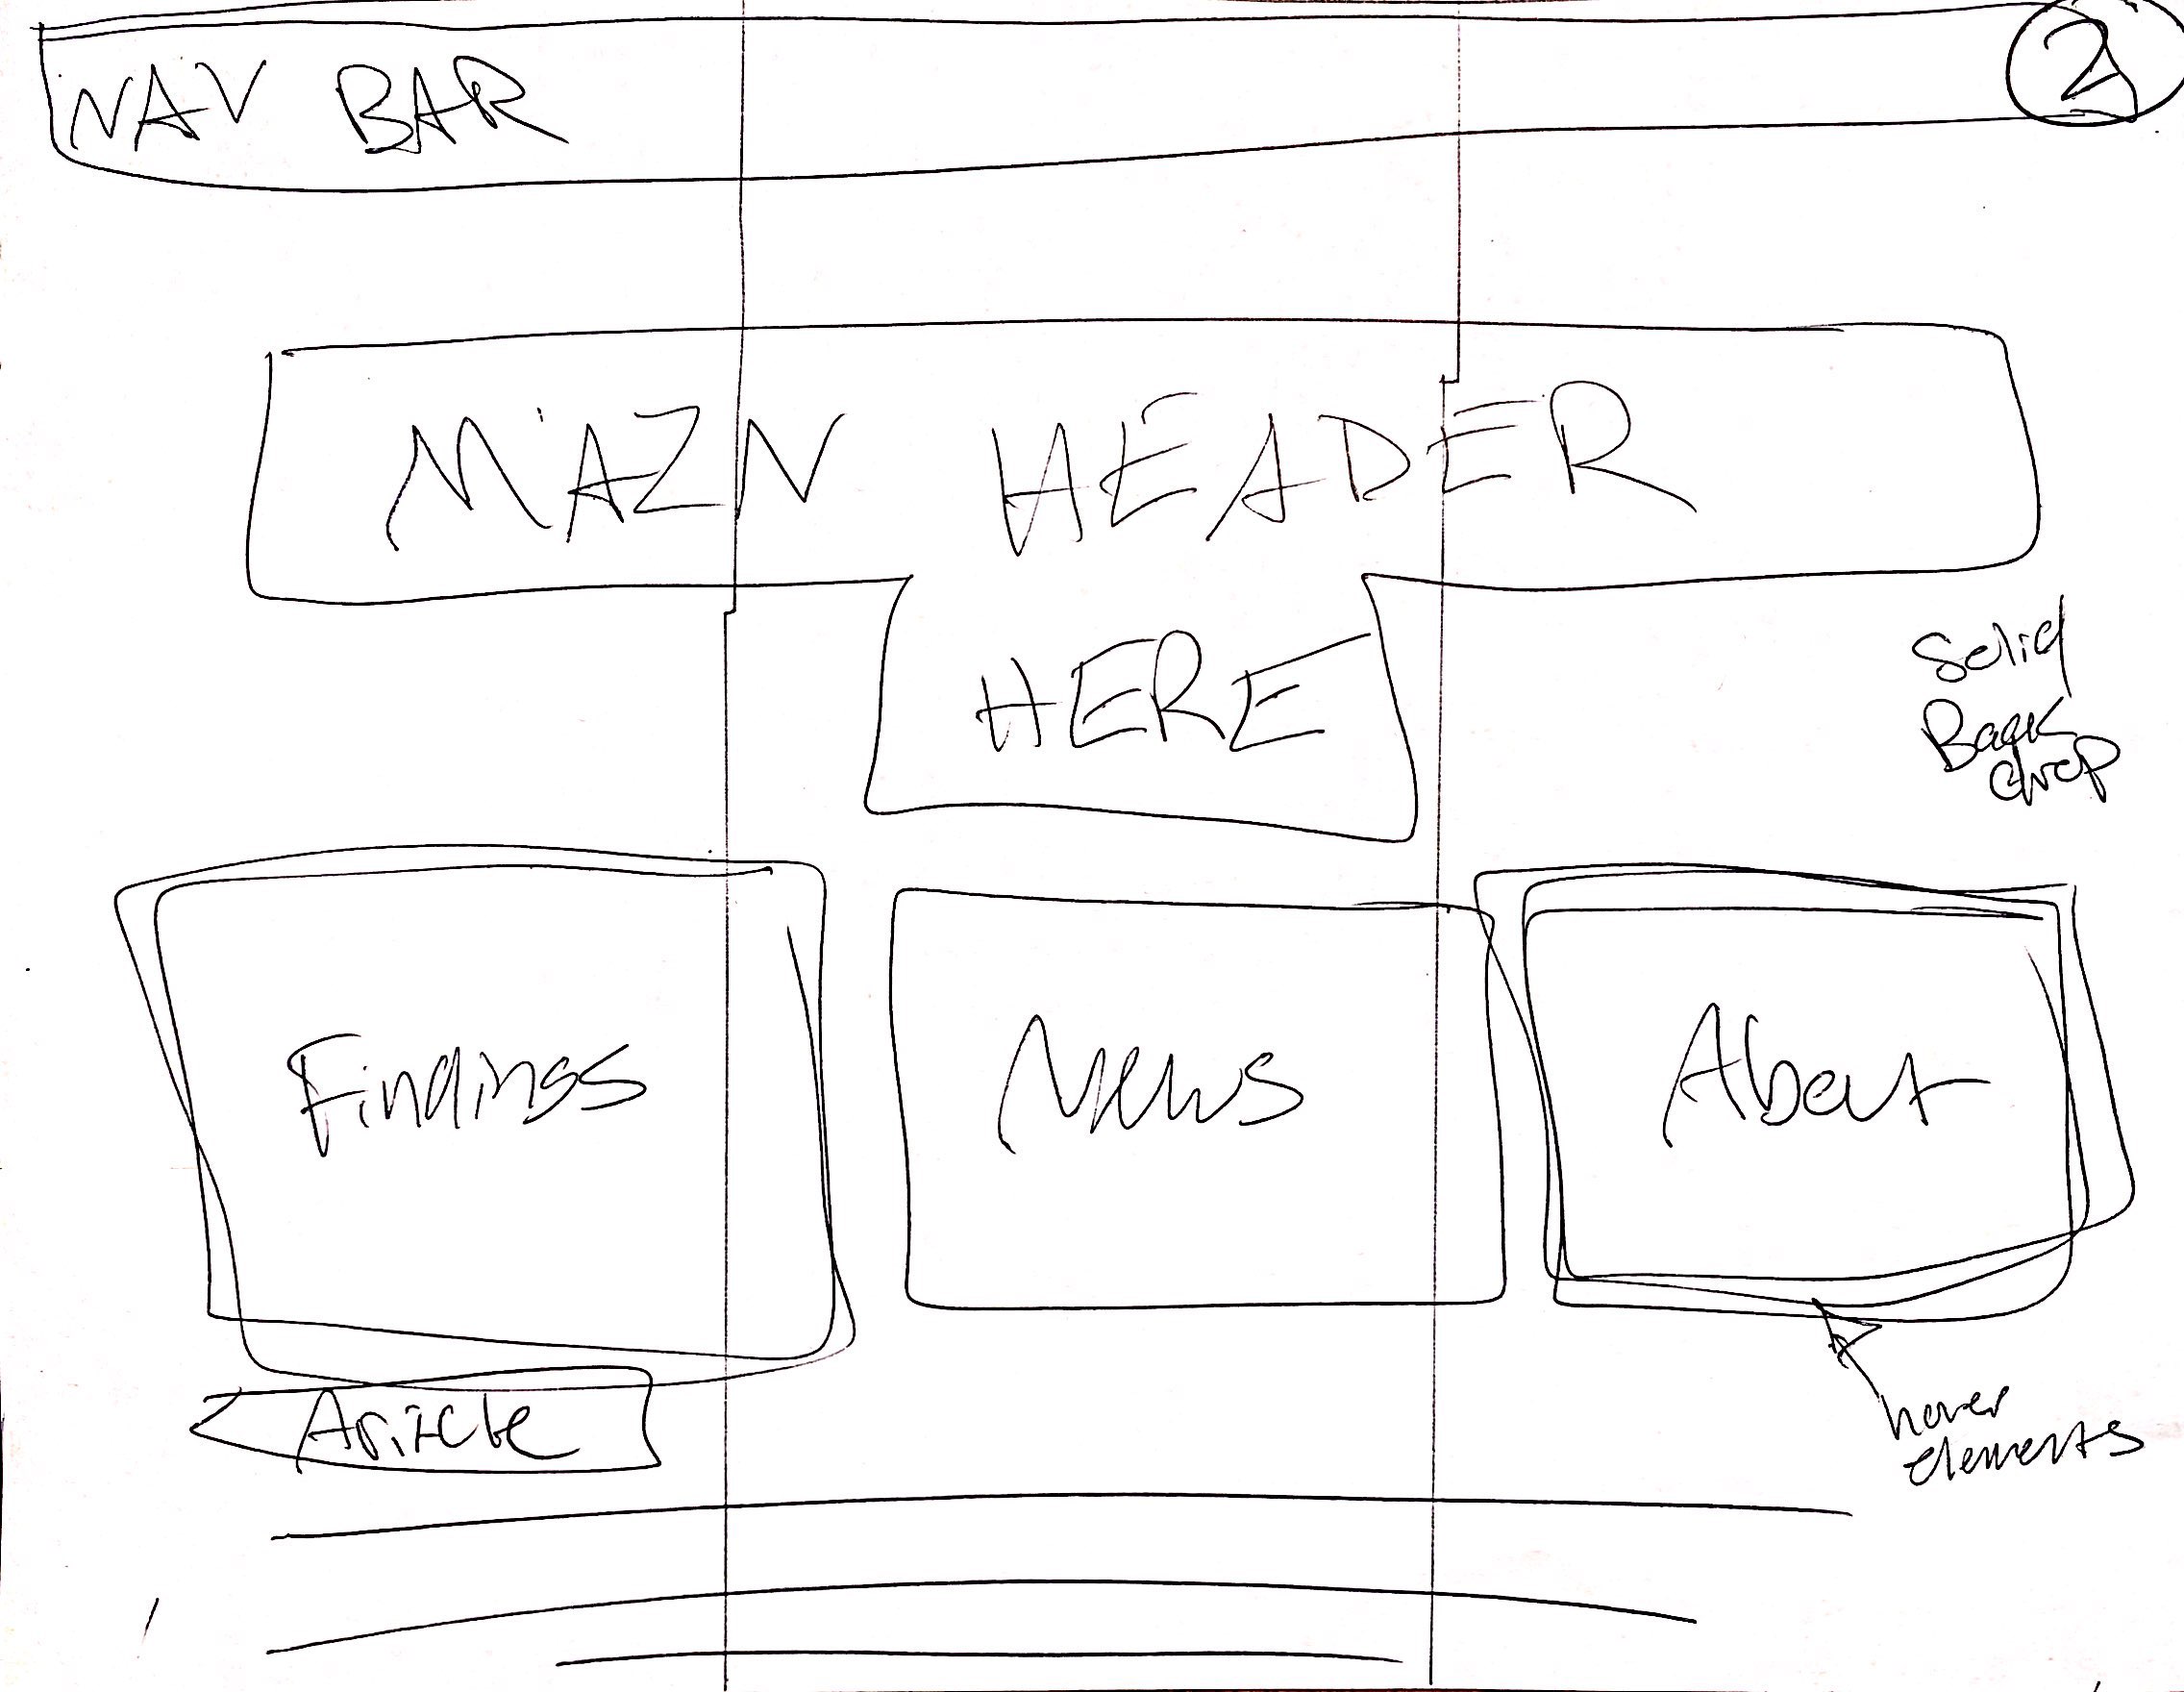 NAV BAR
2
MAIN HEADER
HERE
Solid
Back
drop
Findings
News
About
Article
hover
elements